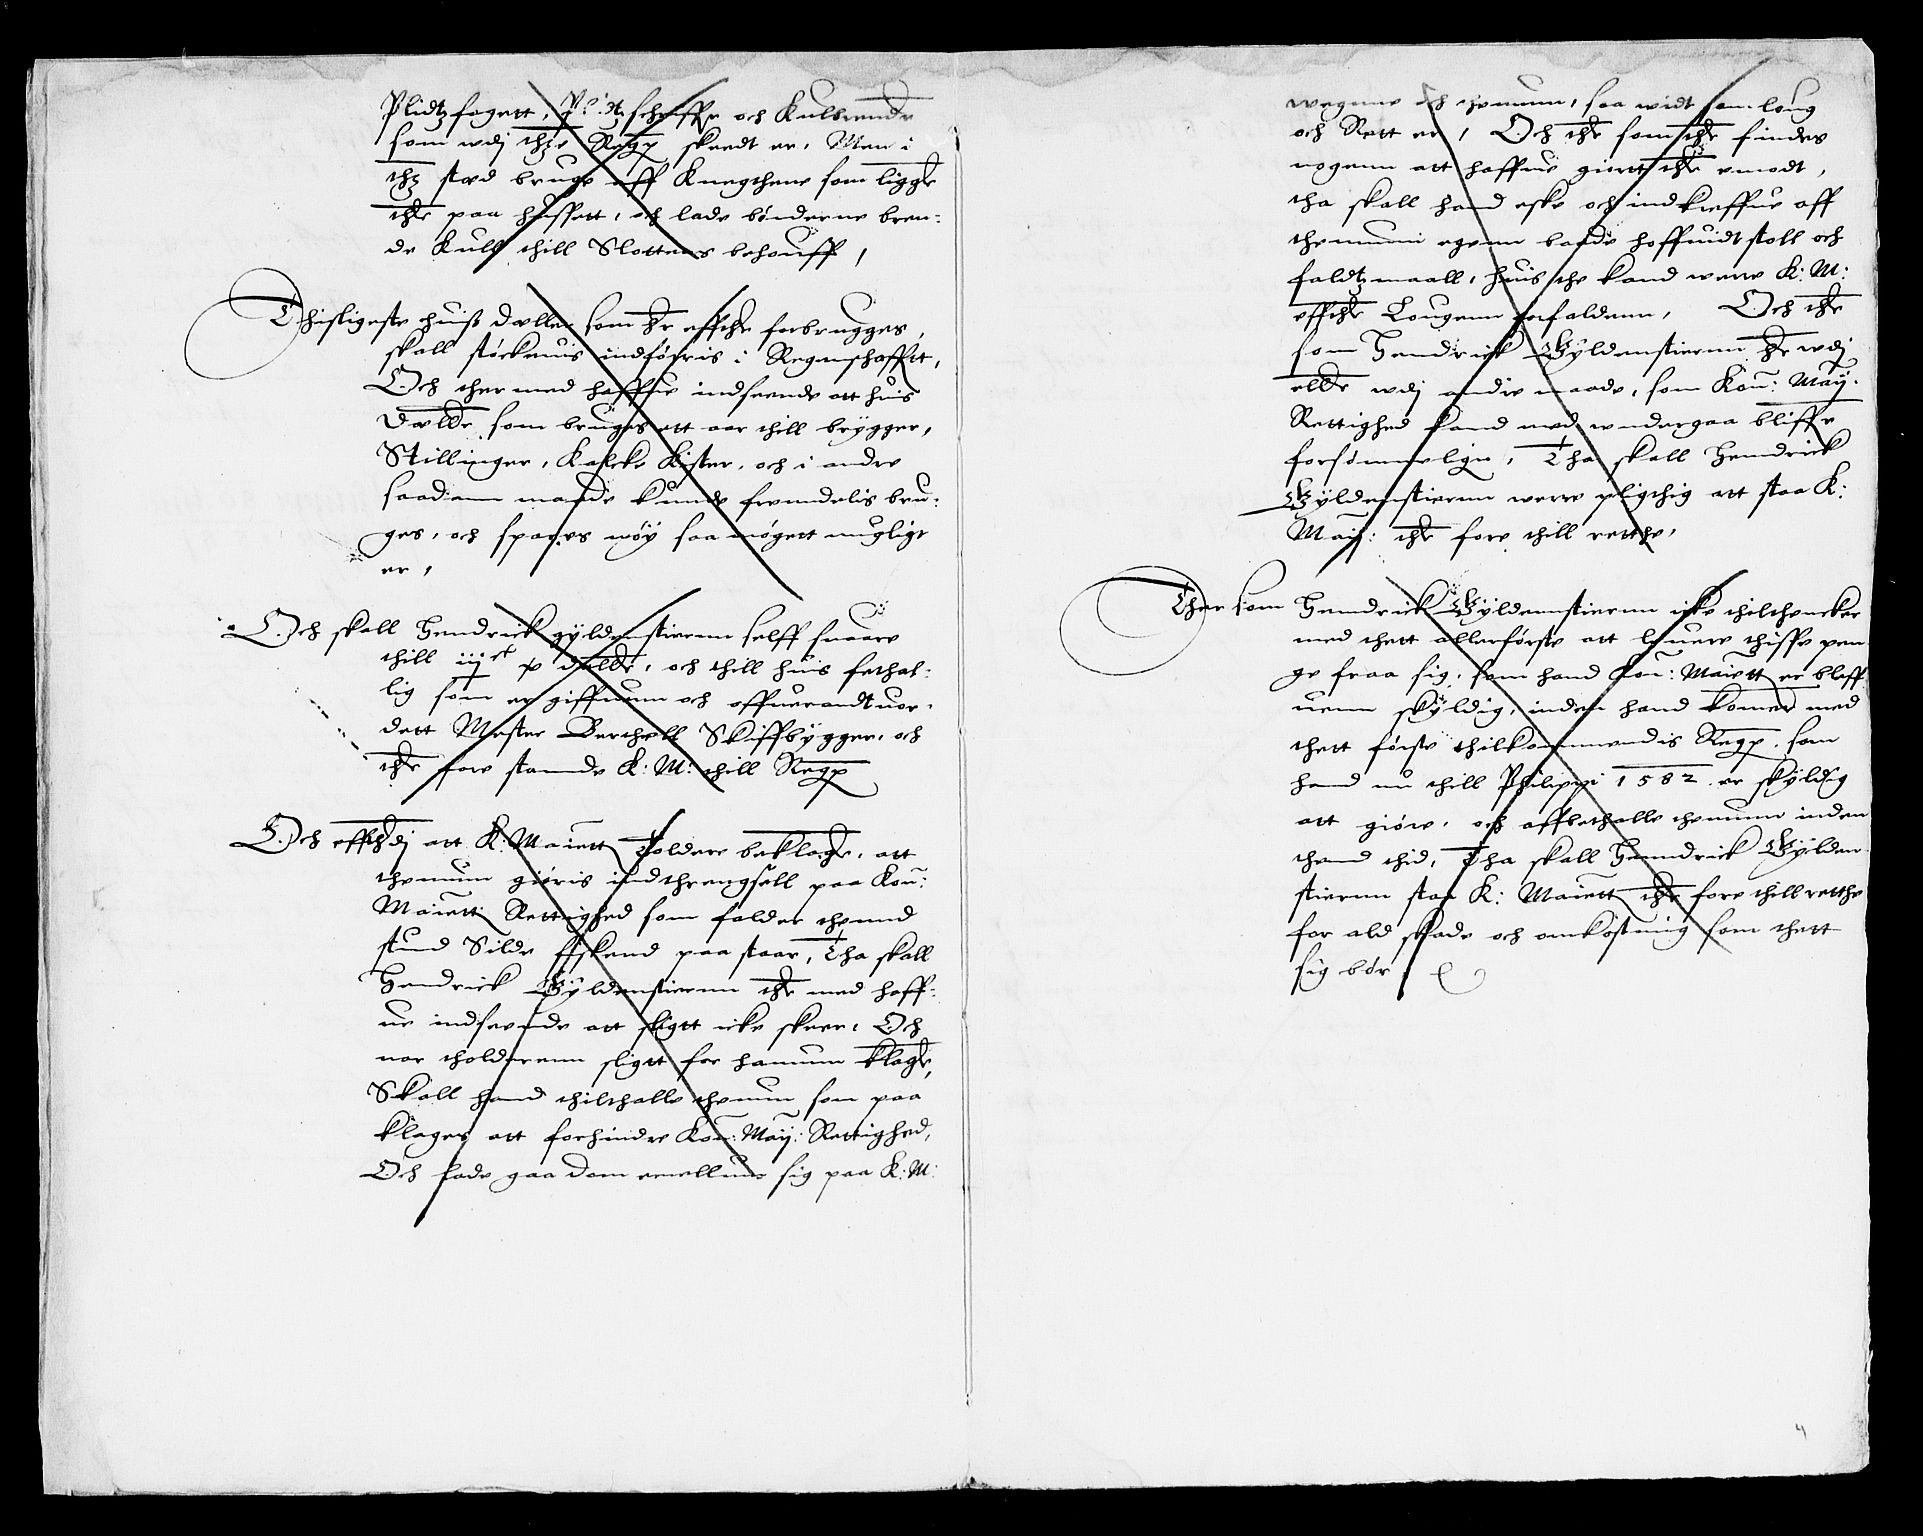 Plidtz fogett, Plidtz scheffer och Kulsuende
som wdj thz Regp skeedt er, Men i
thz sted bruge aff Knegthene som ligger
ther paa hussett, och lade bønderne bren-
de Kull thill Slottens behouff,
Thisligeste huiß Dæller som her effther forbrugges,
skall støckeuis indføris i Regenschafftt,
Och ther med haffue indseende att huis
Dæller som bruges ett aar thill brygger,
Stillinger, Kalcke Kister, och i andre
saadann maade kunde fremdelis bru-
ges, och spares nøy saa møgett mugligt
er,
Och skall Hendrick gyldenstiernn selff suare
thill iiijc x daller, och thill huis fethal-
lig som er giffuenn och offuerandtuor-
dett Mester Berthell Skiffbygger, och
ther fore stande K: M: thill Regp
Och effthdj att K: Maiett Tolder beklager, att
themum giøris indthrengsell paa Kou:
Maiett Rettighed som falder thennd
stund Silde fiskend paa staar, Tha skall
Hendrick Gyldenstiernn ther med haff-
ue indseende att sligtt icke skeer, Och
nar tholderenn sligtt for hanum klager,
Skall hand thilthalle themum som paa
klages att forhindre Kou: May: Rettighed,
Och lade gaa Dom emellum sig paa K: M:
wegnne och themum, saa widt som loug
och Rett er, Och ther som ther findes
nogenn att haffue giortt ther emodt,
tha skall hand eske och indkreffue aff
themum egenn baade hoffuidt stoll och
faldtzmaall, huis the kand were K: M:
effther Lougenn forfaldenn, Och ther
som Hendrick Gyldenstiernn her wdj
eller wdj andre maade, som Kou: May:
Rettighed kand med wndergaa bliffr
forsømmelige, Tha skall Hendrick
Gyldenstiernn were pligthig att staa K:
May: ther fore thill retthe,
Ther som Henndrick Gyldennstiernn icke thilthencker
med thett allerførste att leuere thisse pen
ge fraa sig, som hand Kou: Maiett er bleff
uenn skyldig, inden hand komer med
thett første thilkommendis Regp, som
hand nu thill Philippi 1582 er skyldig
att giøre, och affbethalle themum inden
thend thid, Tha skall Henndrick Gylden
stiernn staa K: Maiett ther fore thill retthe
for ald skade och omkostning som thett
sig bør
4